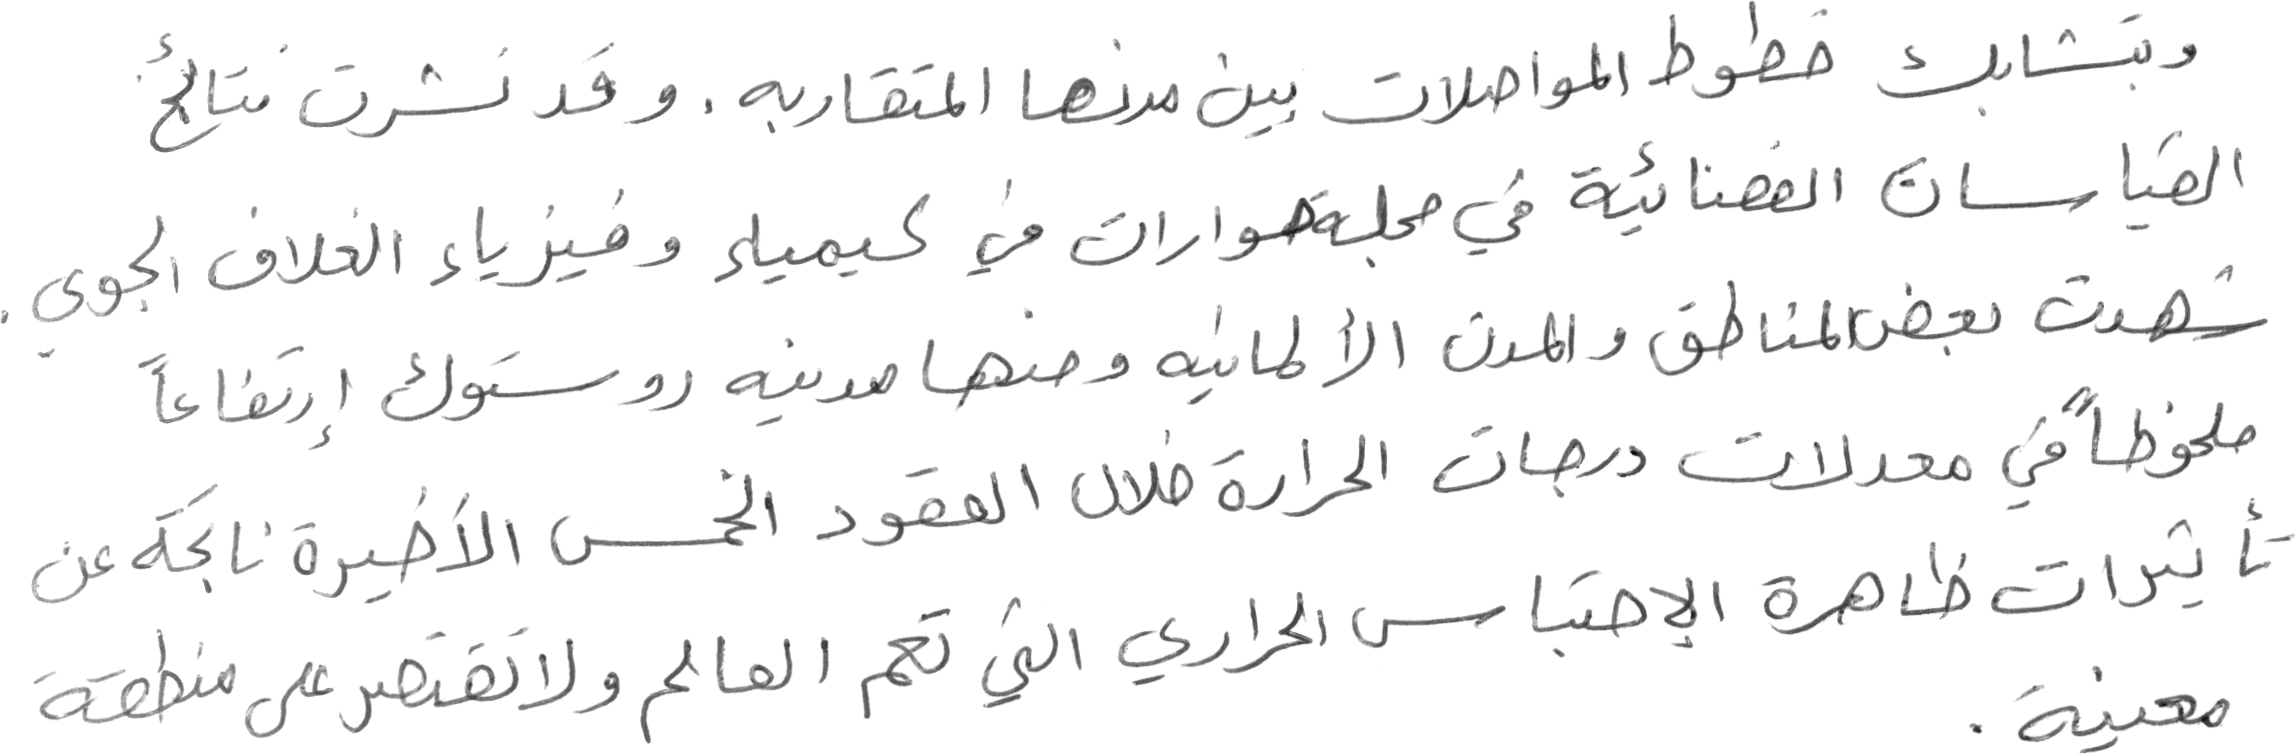 وبتشابك خطوط المواصلات بين مدنها المتقاربه. وقد نشرت نتائج
القياسات الفضائية في مجلة حوارات في كيمياء وفيزياء الغلاف الجوي.
شهدت بعض المناطق والمدن الألمانيه ومنها مدينه روستوك إرتفاعاً
ملحوظاً في معدلات درجات الحرارة خلال العقود الخمس الأخيرة ناتجة عن
تأثيرات ظاهرة الإحتباس الحراري التي تعم العالم ولا تقتصر على منطقة
معينة.